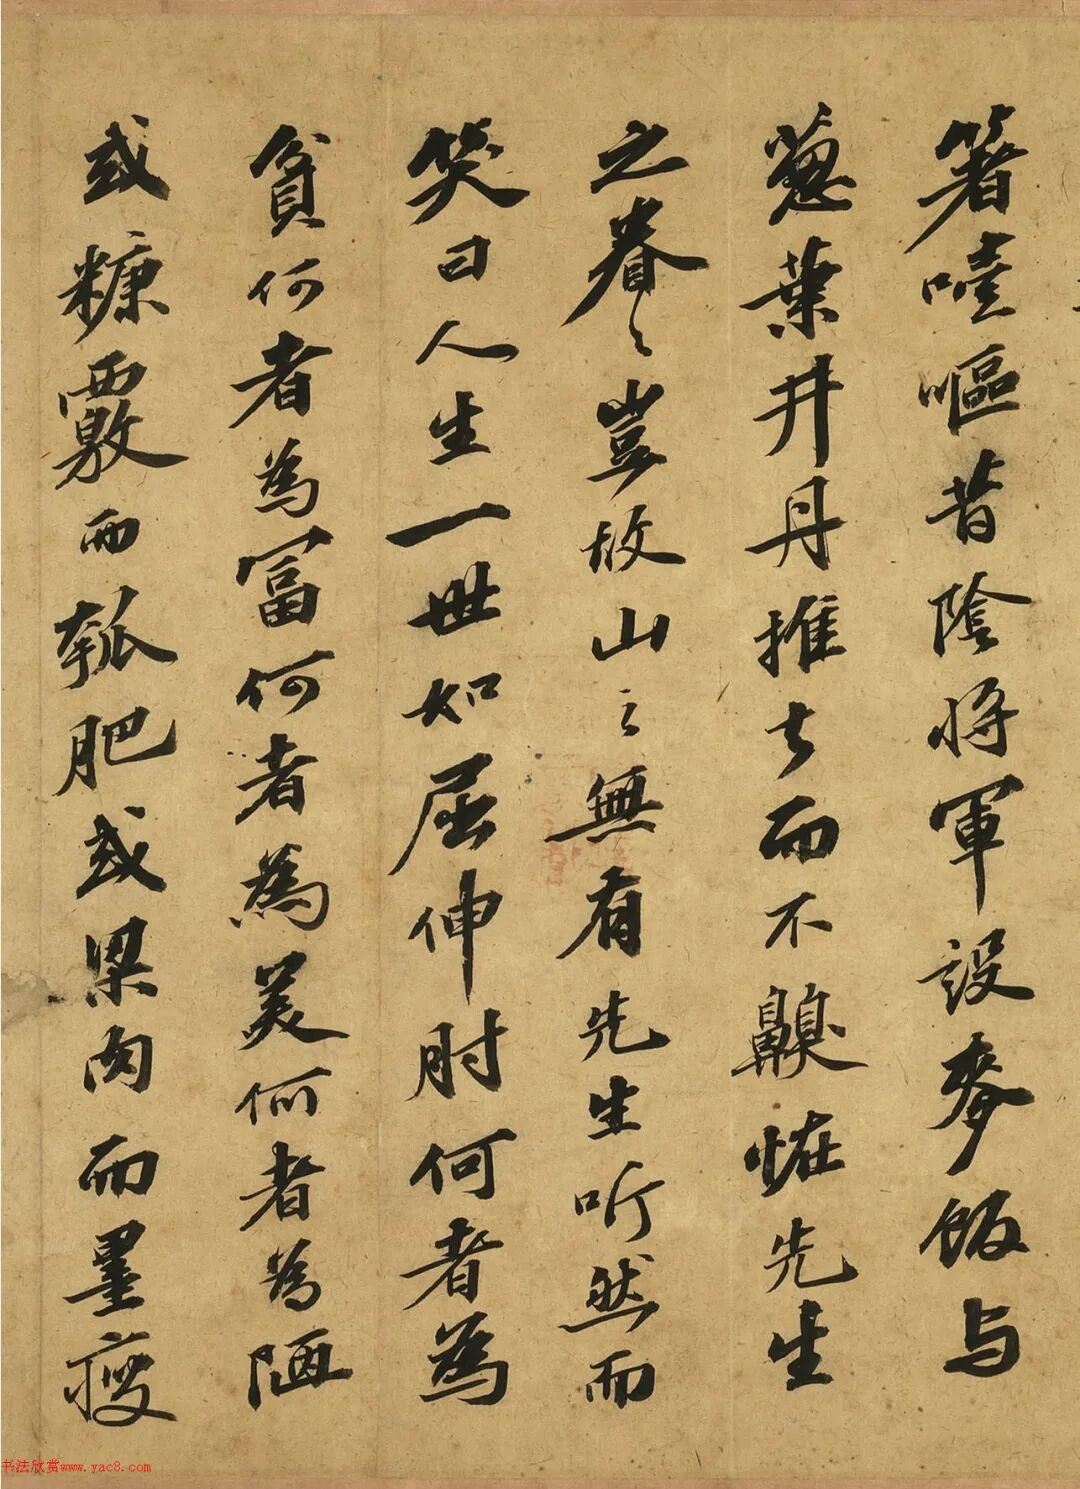 箸噎嘔昔陰將軍設麥飯与
葱葉井丹推去而不齅怪先生
之眷〻豈故山之無有先生听然而
笑曰人生一世如屈伸肘何者為
貧何者為富何者為美何者為陋
或糠覈而瓠肥或粱肉而墨瘦
书法欣赏www.yac8.com